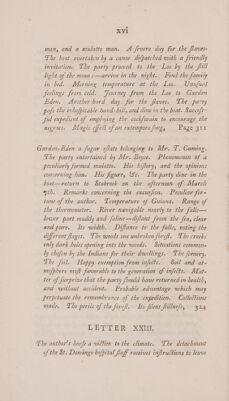 xvi
man, and a mulatto man. A severe day for the slaves.
The boat overtaken by a canoe dispatched with a friendly
invitation. The party proceed to the Loo by the still
light of the moon :—arrive in the night. Find the family
in bed. Morning temperature at the Loo. Unusual
feelings from cold. Journey from the Loo to Garden
Eden. Another hard day for the slaves. The party
pass the inhospitable sand-hill, and dine in the boat. Success-
ful expedient of employing the cockswain to encourage the
negroes. Magic effect of an extempore song, Page 311
Garden-Eden a sugar estate belonging to Mr. T. Cuming.
The party entertained by Mr. Boyce. Phenomenon of a
peculiarly formed mulatto. His history, and the opinions
concerning him. His figure, &c. The party dine in the
boat—return to Stabroek on the afternoon of March
7th. Remarks concerning the excursion. Peculiar for-
tune of the author. Temperature of Guiana. Range of
the thermometer. River navigable nearly to the falls—
lower part muddy and saline—distant from the sea, clear
and pure. Its width. Distance to the falls, noting the
different stages. The woods one unbroken forest. The creeks
only dark holes opening into the woods. Situations common-
ly chosen by the Indians for their dwellings. The scenery.
The soil. Happy exemption from insects. Soil and at-
mosphere most favorable to the generation of insects. Mat-
ter of surprize that the party should have returned in health,
and without accident. Probable advantage which may
perpetuate the remembrance of the expedition. Collections
made. The perils of the forest. Its silent stillness, 324
LETTER XXIII.
The author's horse a victim to the climate. The department
of the St. Domingo hospital staff receives instructions to leave